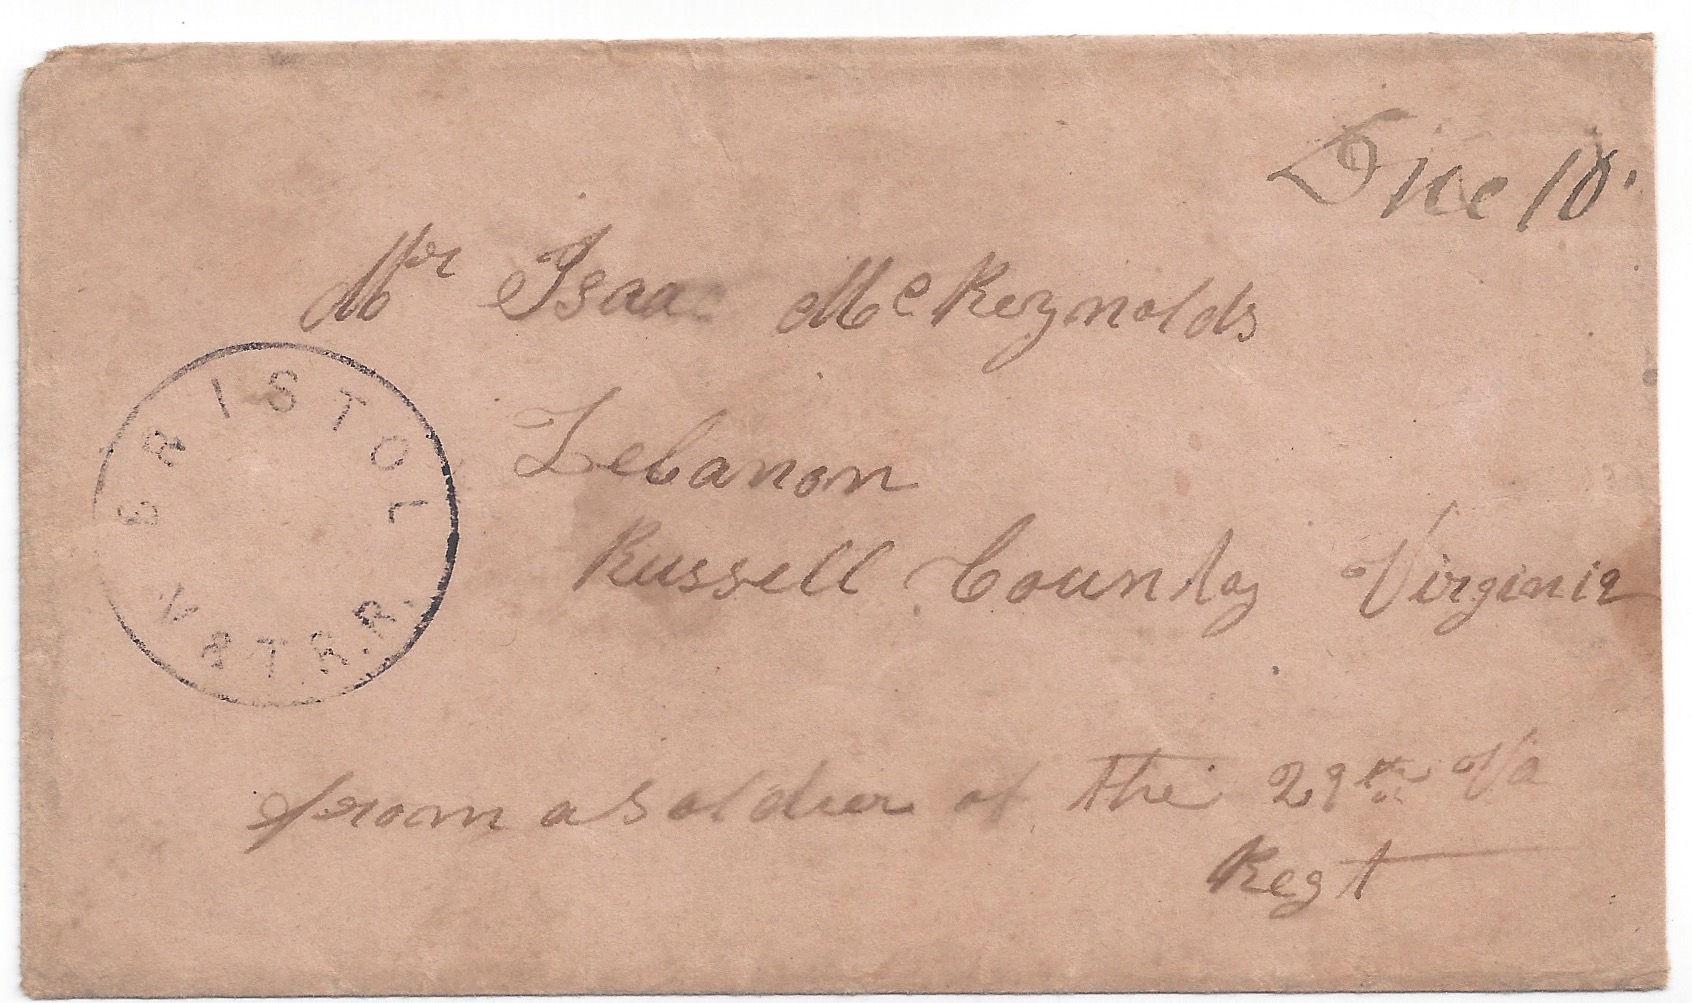 Due 10.
Mr Isaac McReynolds
BRISTOL
V & T R.R.
Lebanon
Russell County Virginia
from a Soldier of the 29th Va
Regt